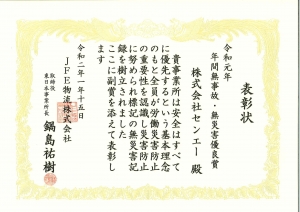 表彰状
令和元年
年間無事故・無災害優良賞
株式会社センエー 殿
貴事業所は安全はすべて
に優先するという基本理念
のもと全員が労働災害防止
の重要性を認識し災害防止
に努められ標記の無災害記
録を樹立されました
ここに副賞を添えて表彰し
ます
令和二年一月十五日
JFE物流株式会社
取締役
東日本事業所長
鍋島祐樹